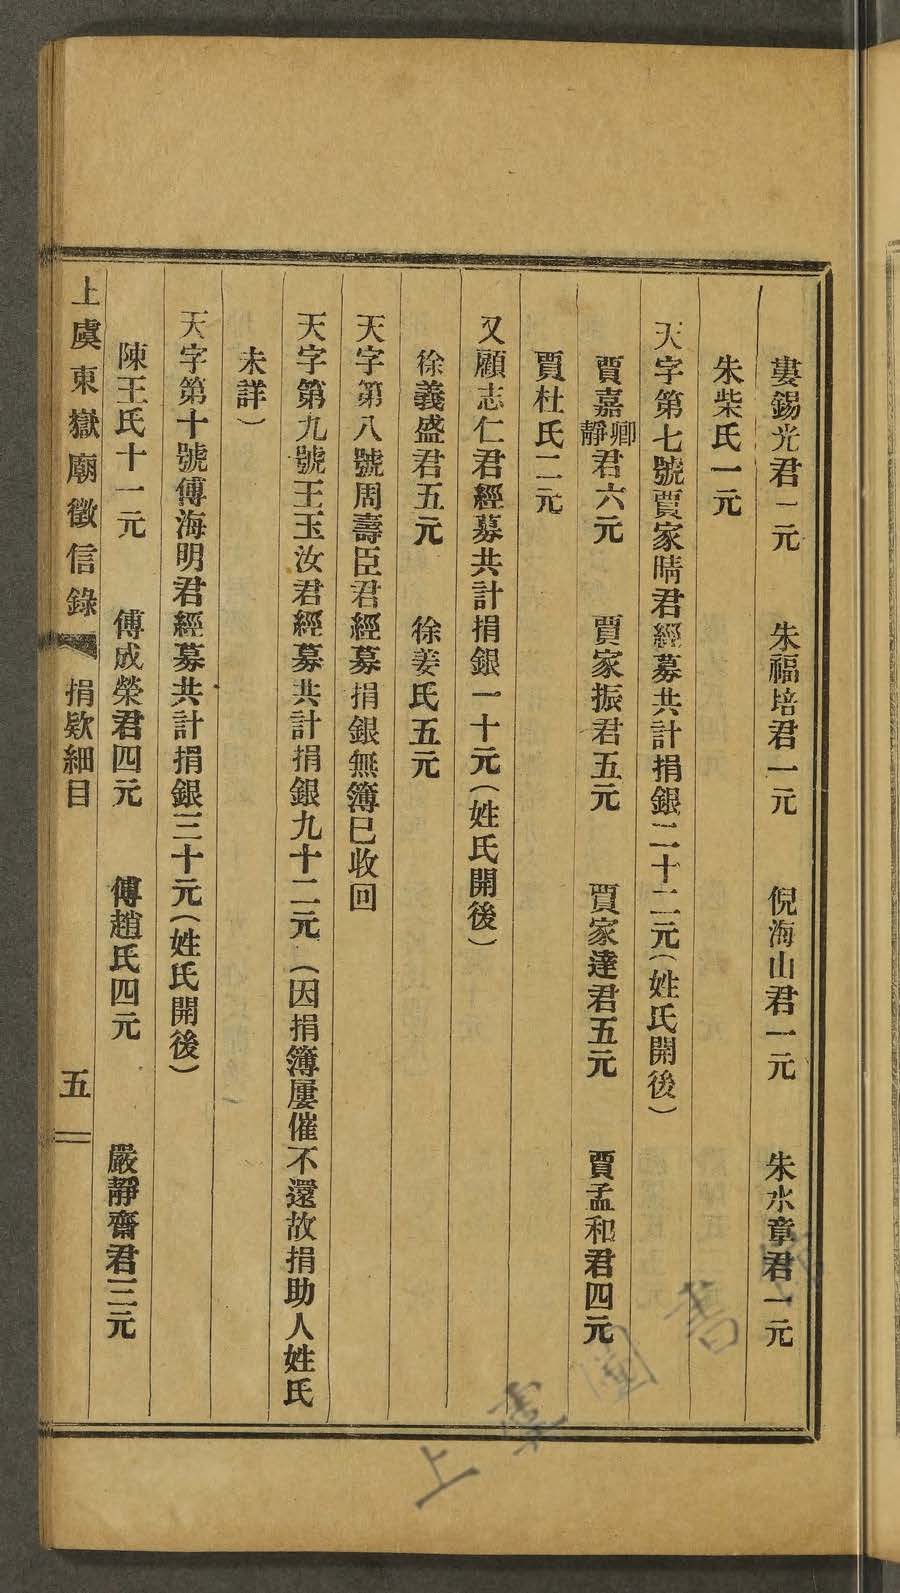 婁錫光君一元　朱福培君一元　倪海山君一元　朱水章君一元
朱柴氏一元
天字第七號賈家晴君經募共計捐銀二十二元（姓氏開後）
賈嘉卿靜君六元　賈家振君五元　賈家達君五元　賈孟和君四元
賈杜氏二元
又顧志仁君經募共計捐銀一十元（姓氏開後）
徐義盛君五元　徐姜氏五元
天字第八號周壽臣君經募捐銀無簿已收回
天字第九號王玉汝君經募共計捐銀九十二元（因捐簿屢催不還故捐助人姓氏
未詳）
天字第十號傅海明君經募共計捐銀三十元（姓氏開後）
陳王氏十一元　傅成榮君四元　傅趙氏四元　嚴靜齋君三元
上虞東嶽廟徵信錄　捐欵細目　五
上虞圖書